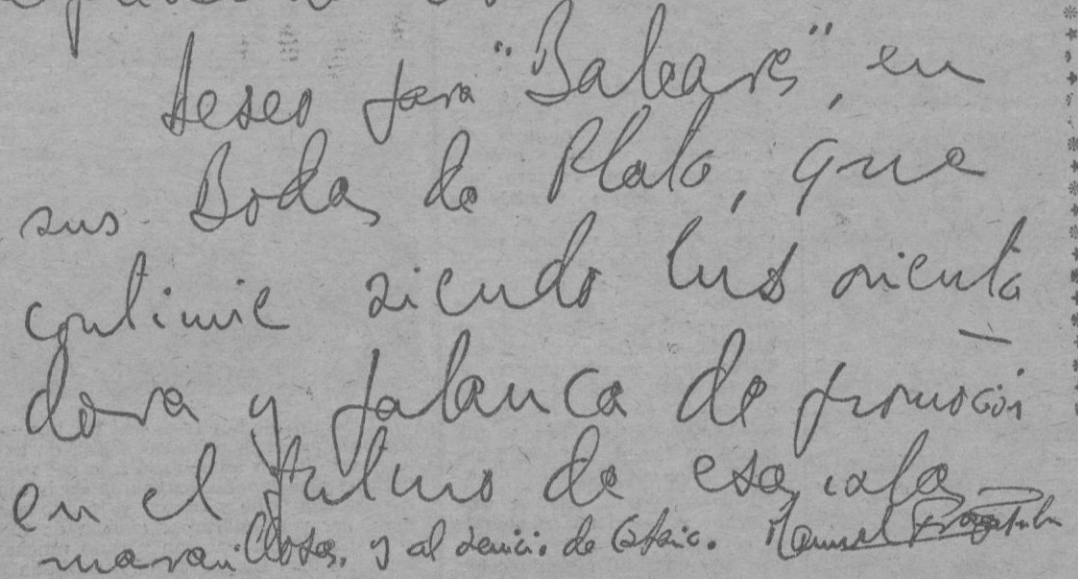 deseo para "Baleares", en
sus Bodas de Plata, que
continúe siendo luz orienta
dora y palanca de promoción
en el futuro de esas islas
maravillosas, y al servicio de España. Manuel Fraga